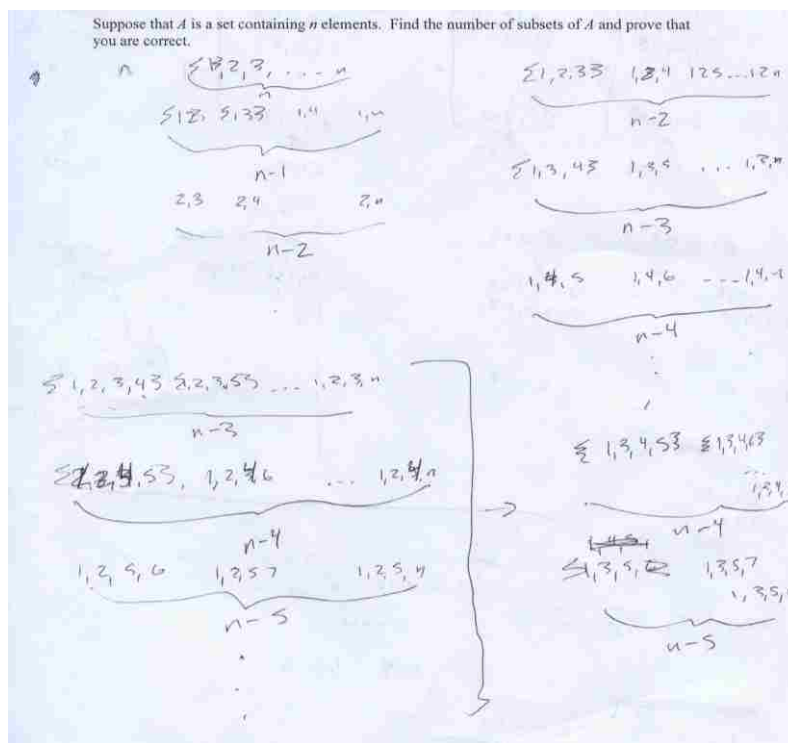 Suppose that A is a set containing n elements. Find the number of subsets of A and prove that
you are correct.
n {1, 2, 3, .... n
n
{12, {,13} 1,4 1,n
n-1
2,3 2,4 2,n
n-2
{1,2,3} 1,2,4 125...12n
n-2
{1,3,4} 1,3,5 ... 1,3,n
n-3
1,4,5 1,4,6 ---1,4,n
n-4
{1,2,3,4} {1,2,3,5} ... 1,2,3,n
n-3
,5}, 1,2,4,6 ... 1,2,4,n
n-4
1,2,5,6 1,2,5 7 1,2,5,n
n-5
→
{1,3,4,5} {1,3,4,6}
...
1,3,4,
n-4
{1,3,5, 1,3,5,7
1,3,5,
n-5